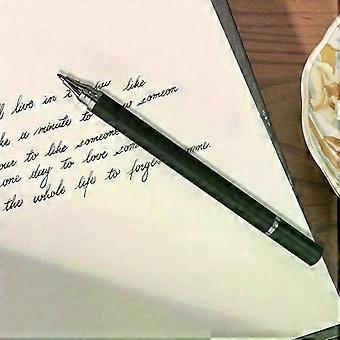 live in t like
a minute to someon
our to like someone
one day to love som
the whole life to forget